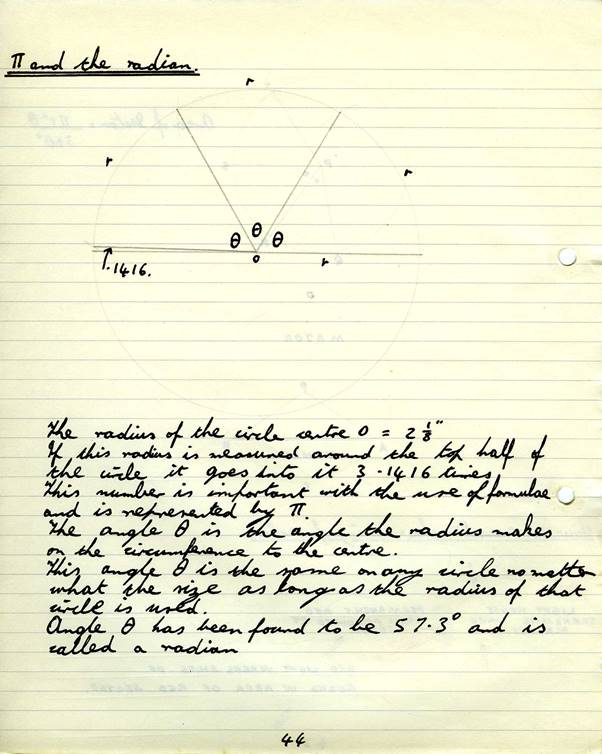 π and the radian.
r
r
r
θ
θ
θ
o
r
.1416.
The radius of the circle centre O = 2 1/8"
If this radius is measured around the top half of
the circle it goes into it 3.1416 times
This number is important with the use of formulae
and is represented by π.
The angle θ is the angle the radius makes
on the circumference to the centre.
This angle θ is the same on any circle no matter
what the size as long as the radius of that
circle is used.
Angle θ has been found to be 57.3° and is
called a radian
44